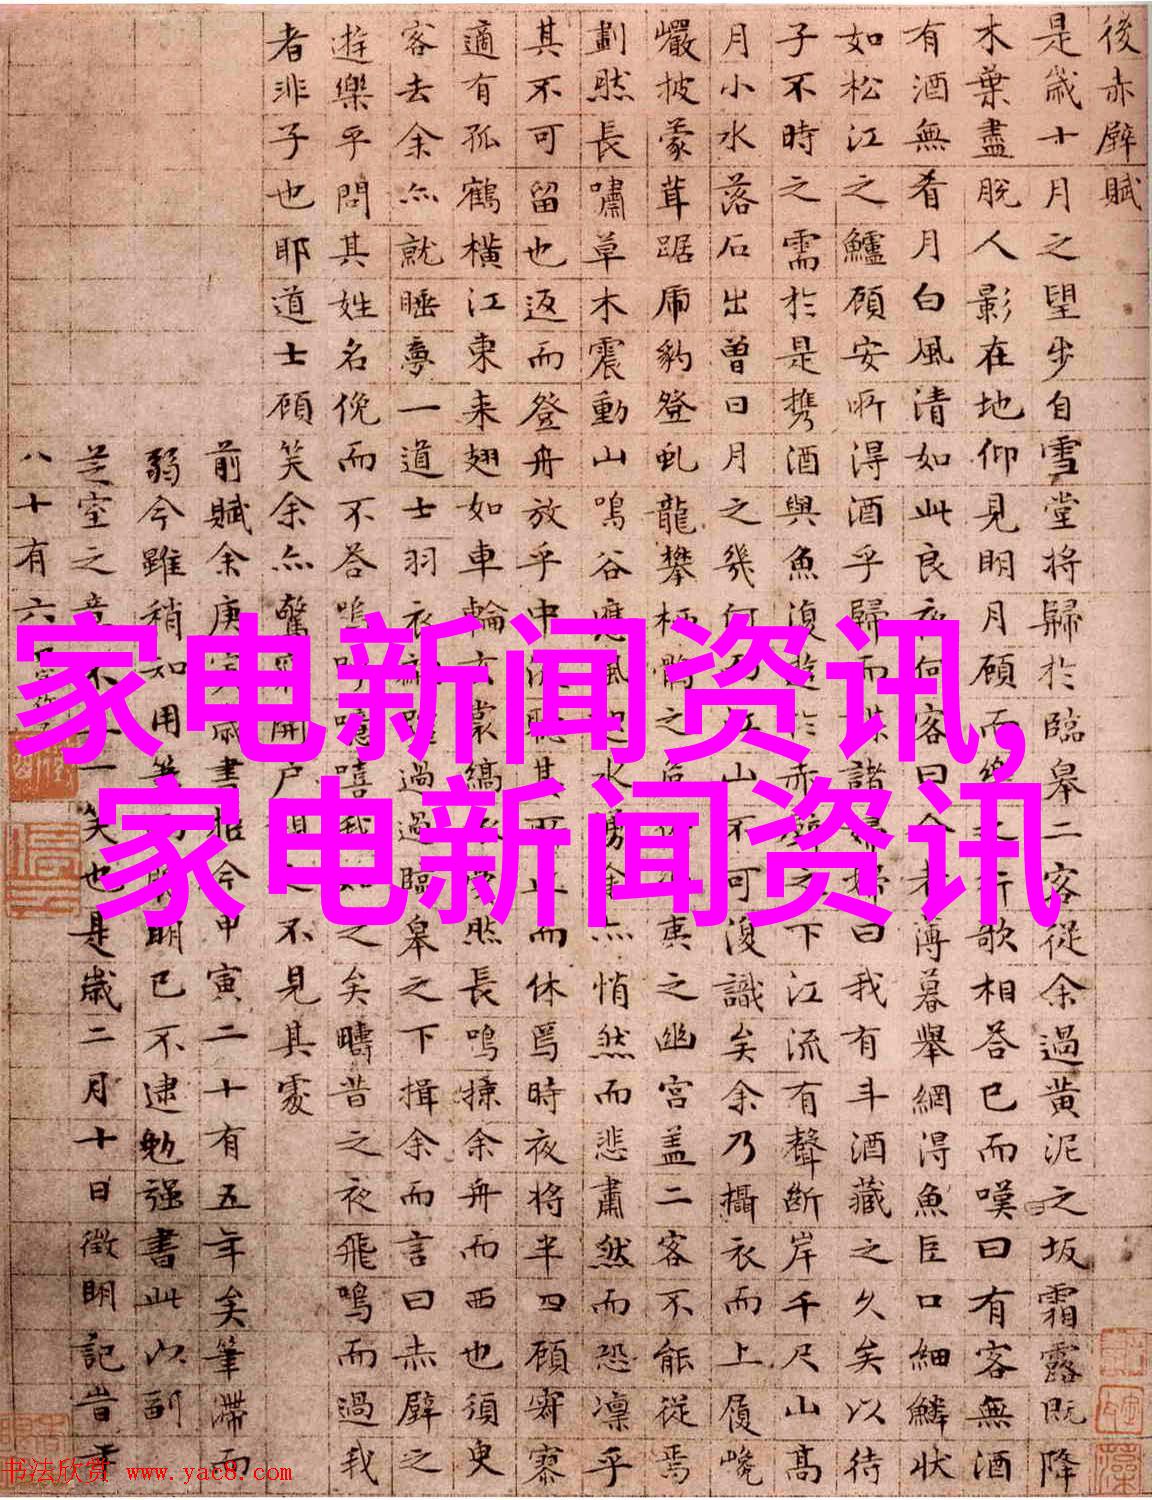 後赤壁賦
是歲十月之望步自雪堂將歸於臨皋二客從余過黃泥之坂霜露既降
木葉盡脫人影在地仰見明月顧而樂之行歌相答已而嘆曰有客無酒
有酒無肴月白風清如此良夜何客曰今者薄暮舉網得魚巨口細鱗狀
如松江之鱸顧安所得酒乎歸而謀諸婦曰我有斗酒藏之久矣以待
子不時之需於是攜酒與魚復遊於赤壁之下江流有聲斷岸千尺山高
月小水落石出曾日月之幾何江山不可復識矣余乃攝衣而上履巉
巖披蒙茸踞虎豹登虬龍攀栖鶻之危夷之幽宮蓋二客不能從焉
劃然長嘯草木震動山鳴谷應風水湧余亦悄然而悲肅然而恐凜乎
其不可留也返而登舟放乎中流聽其所止而休焉時夜將半四顧寂寥
適有孤鶴橫江東來翅如車輪玄裳縞然長鳴掠余舟而西也須臾
客去余亦就睡夢一道士羽衣過過臨皋之下揖余而言曰赤壁之
遊樂乎問其姓名俛而不答嗚呼噫嘻我知之矣疇昔之夜飛鳴而過我
者非子也耶道士顧笑余亦驚開戶視之不見其處
前賦余庚寅歲書抵今甲寅二十有五年矣筆滯而
弱今雖稍知用筆明已不逮勉強書此以副
芝室之意不一笑也是歲二月十日徵明記昔年
八十有六
家电新闻资讯,
家电新闻资讯
书法欣赏 www.yac8.com